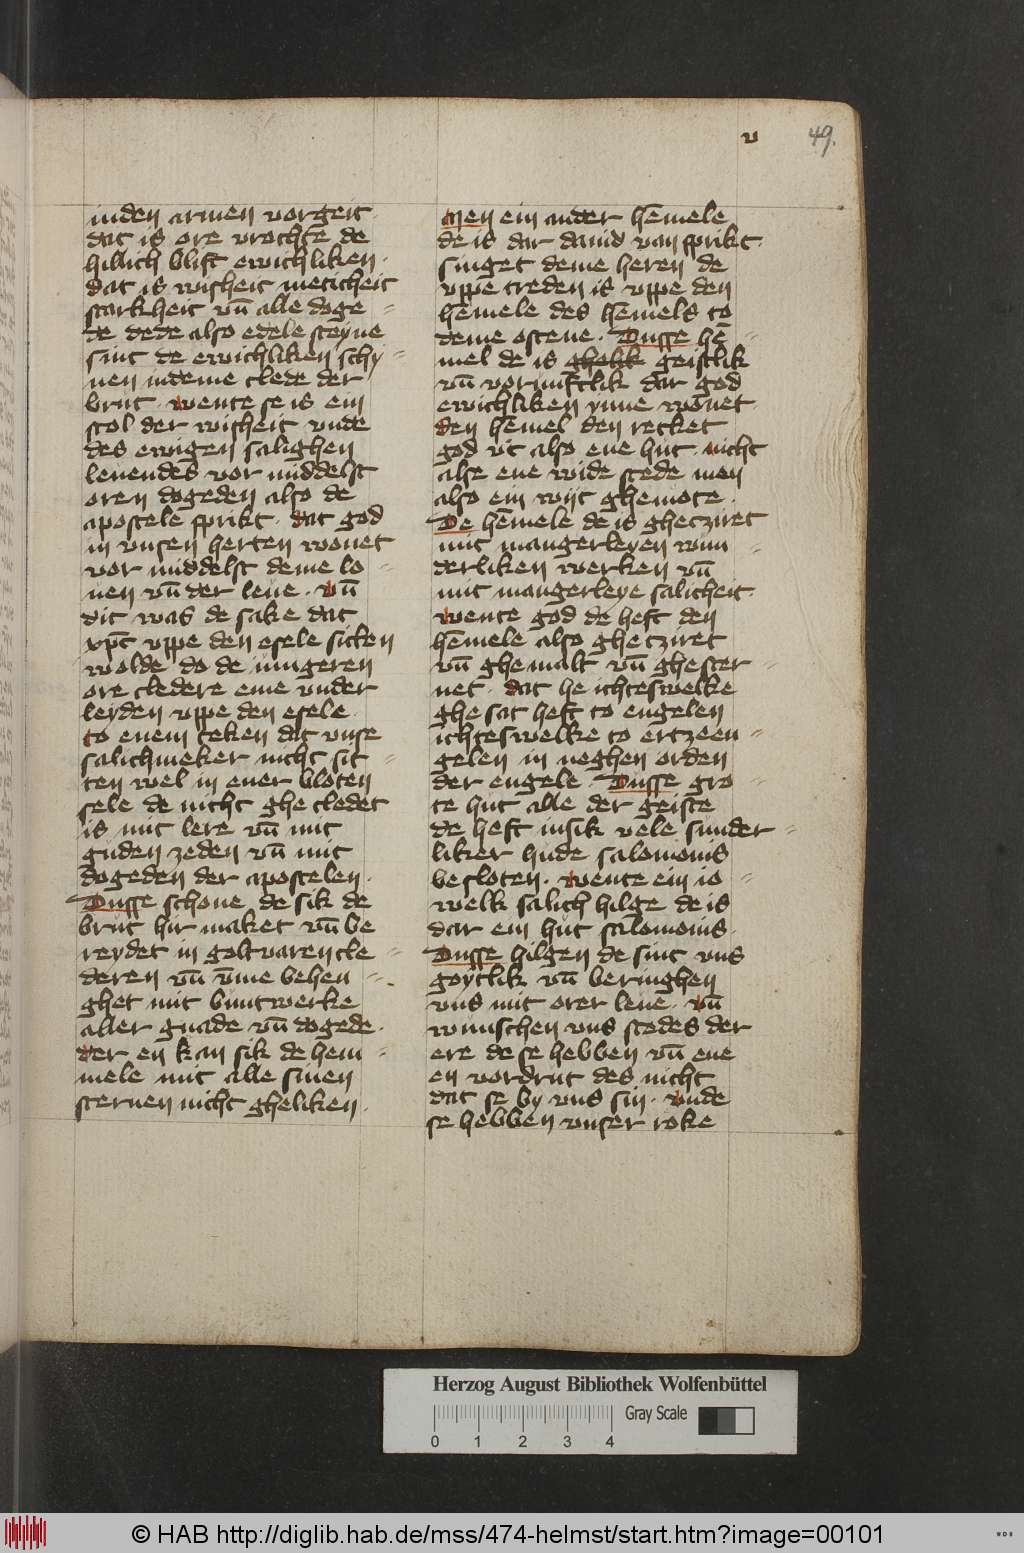 v 49.
in den armen vorgeit·
dat is ore vrochte de
hillich blift ewichliken·
dat is wisheit meticheit
starkheit vn̄ alle doge⸗
de dede also edele steyne
sint de ewichliken schy⸗
nen in deme clede der
brut· wente se is ein
stol der wisheit vnde
des ewigen salighen
leuendes vor middelst
oren dogeden also de
apostele sprikt· dat god
in vnsen herten wonet
vor middelst deme lo⸗
uen vn̄ der leue· vn̄
dit was de sake dat
xp̄c vppe den esele sitten
wolde do de iungeren
ore cledere eme vnder
leyden vppe den esele·
to enem teken dat vnse
salichmeker nicht sit⸗
ten wel in ener bloten
sele de nicht ghe cledet
is mit lere vn̄ mit
guden zeden vn̄ mit
dogeden der apostelen·
Dusse schone de sik de
brut hir maket vn̄ be
reydet in goltvaren cle⸗
deren vn̄ v̄me behen⸗
ghet mit buntwerke
aller gnade vn̄ dogede·
der en kan sik de hem⸗
mele mit alle sinen
sternen nicht gheliken·
Men ein ander hēmele
de is dar dauid van sprikt·
singet deme heren de
vppe treden is vppe den
hēmele des hēmels to
deme ostene· Dusse hē⸗
mel de is ghelik geistlik
vn̄ vornuftlik dar god
ewichliken ynne wonet·
den hēmel den recket
god vt also ene hut· nicht
alse ene wide stede men
also ein wijt ghemote·
De hēmele de is gheczyret
mit mangerleyen wun⸗
derliken werken vn̄
mit mangerleye salicheit·
wente god de heft den
hēmele also gheczyret
vn̄ ghemalt vn̄ ghester⸗
net· dat he ichteswelke
ghe sat heft to engelen
ichteswelke to ertzeen⸗
gelen in neghen orden
der engele· Dusse gro⸗
te hut alle der geiste
de heft in sik vele sunder⸗
liker hude salomonis
besloten· wente ein io⸗
welk salich hilge de is
dar ein hut salomonis·
Dusse hilgen de sint vns
goytlik vn̄ beringhen
vns mit orer leue· vn̄
wunschen vns stedes der
ere de se hebben vn̄ ene
en vordrut des nicht
dat se by vns sin· vnde
se hebben vnser roke
Herzog August Bibliothek Wolfenbüttel
0 1 2 3 4
Gray Scale
© HAB http://diglib.hab.de/mss/474-helmst/start.htm?image=00101